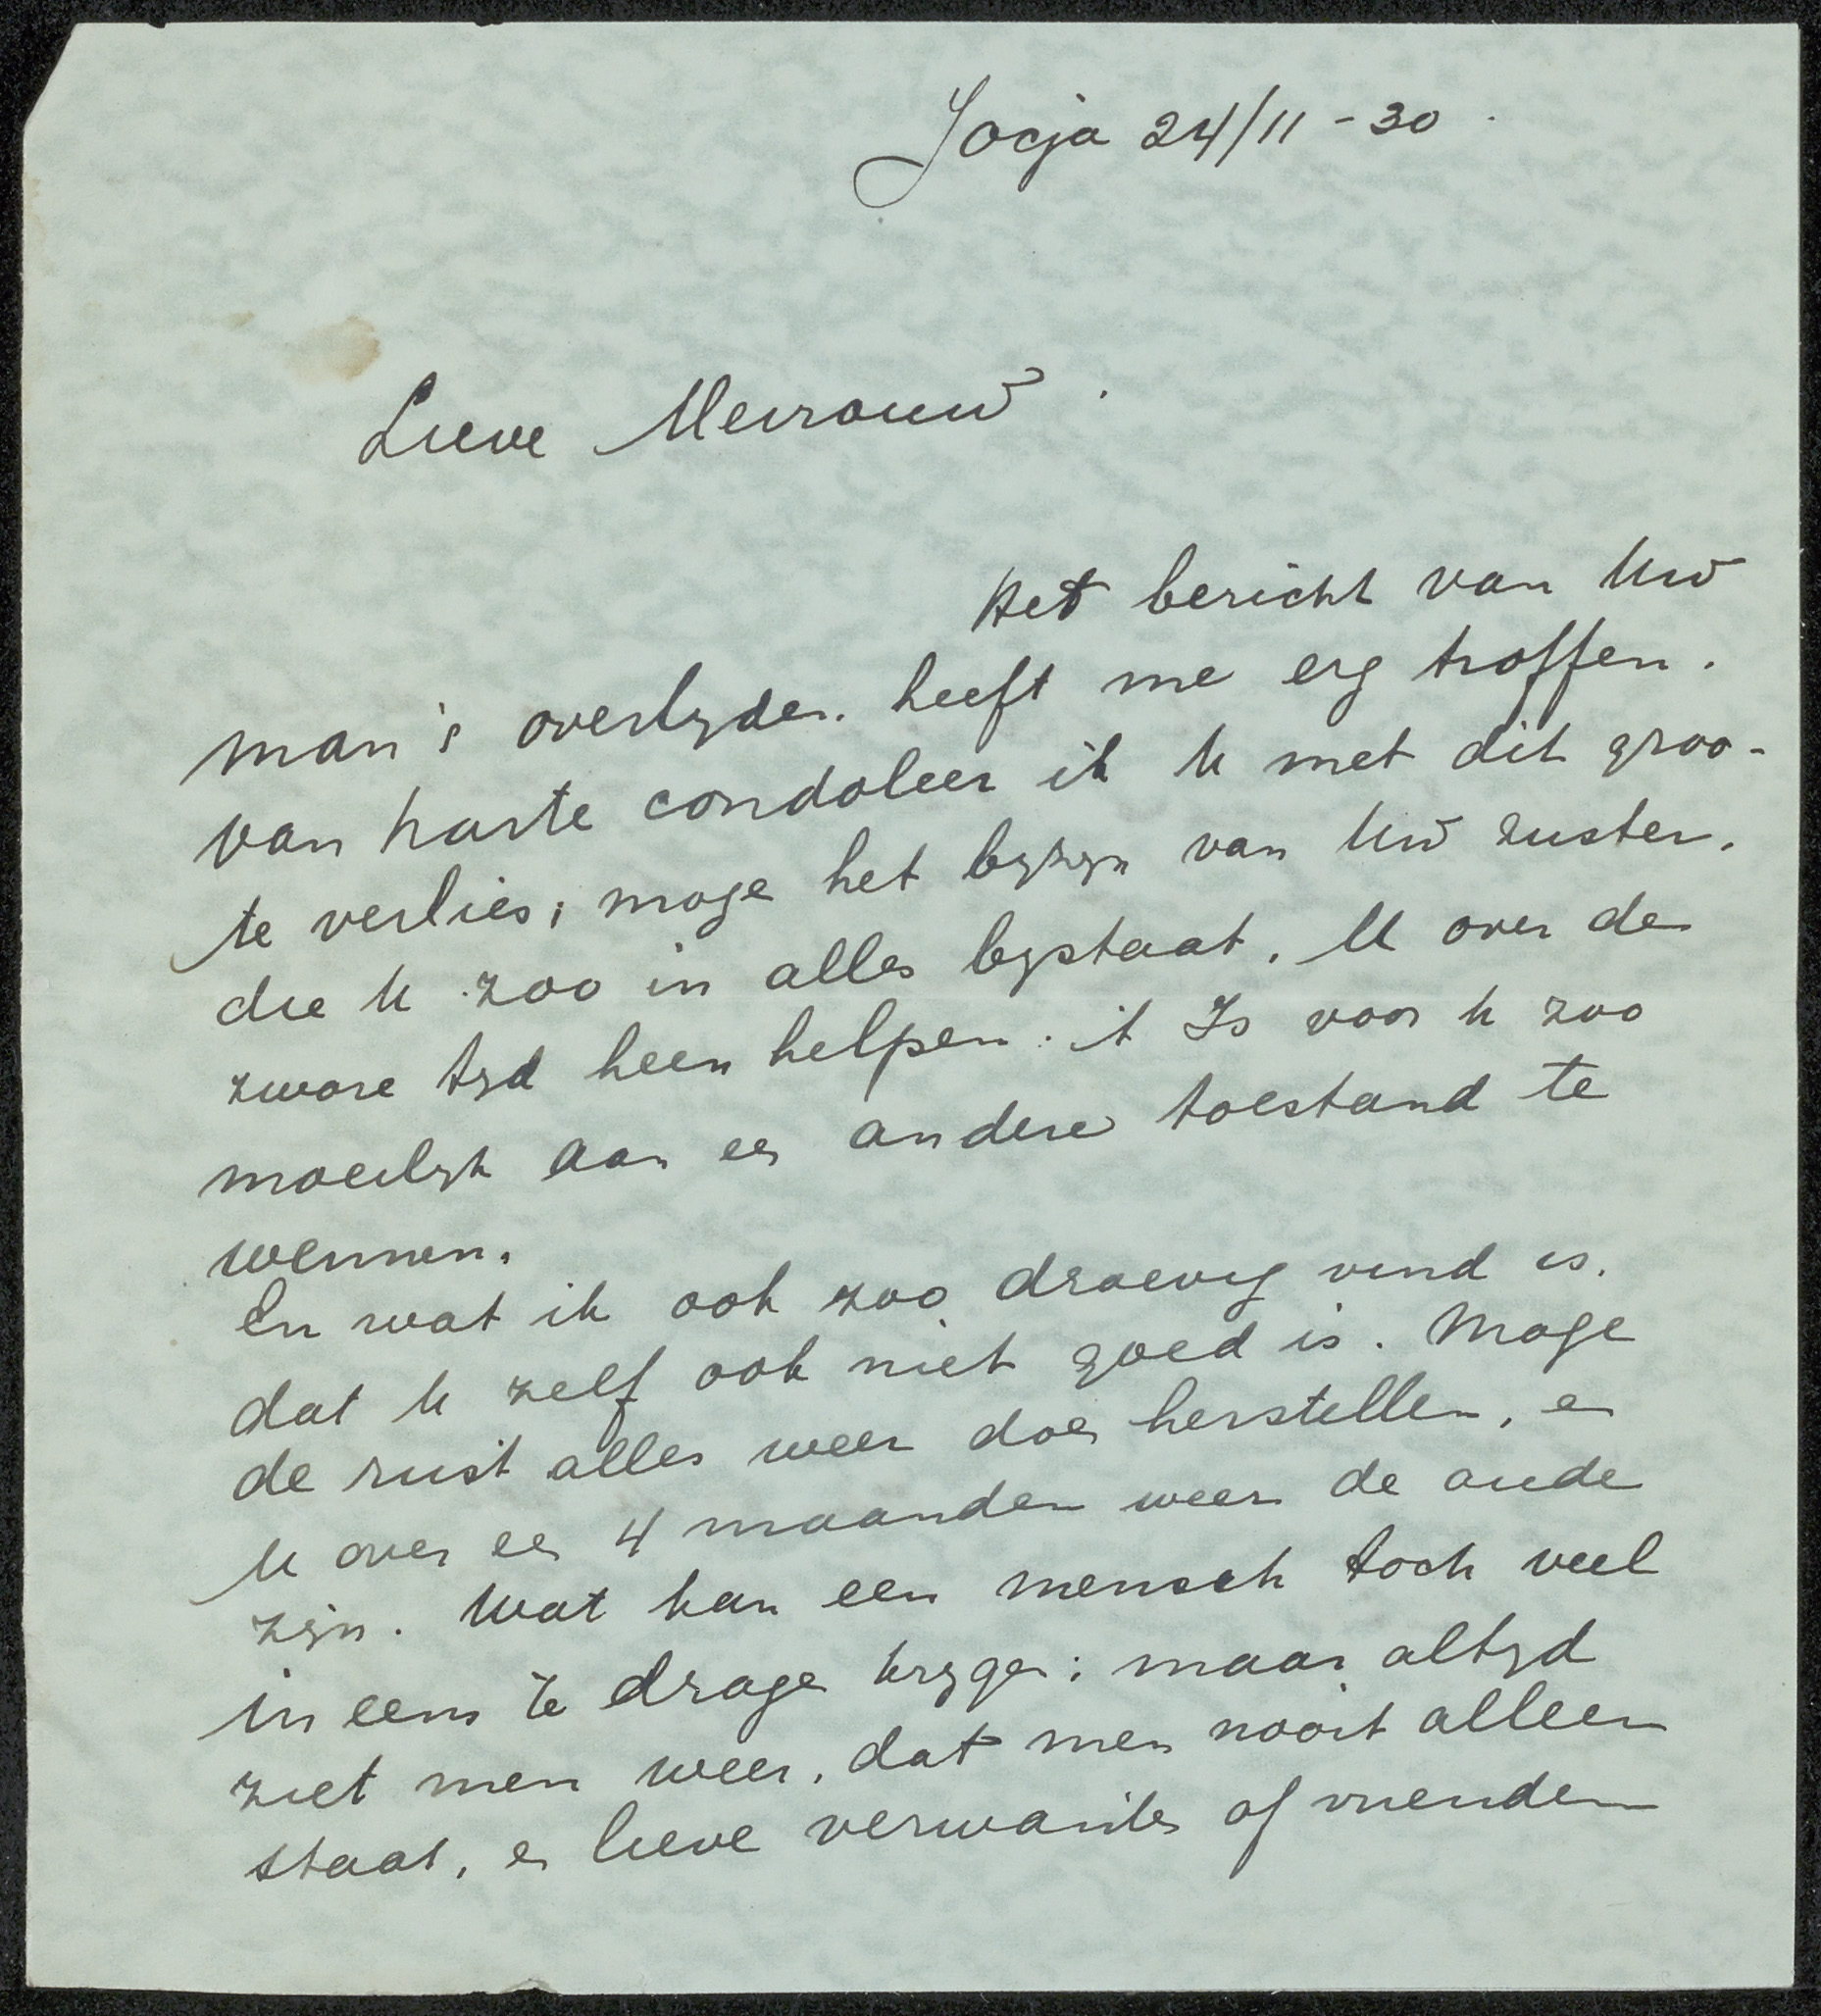 Jocja 24/11 - 30.
Lieve Mevrouw.
Het bericht van Uw
man's overlijden heeft me erg troffen.
van harte condoleer ik U met dit groo-
te verlies; moge het bijzijn van Uw zuster,
die U zoo in alles bijstaat, U over de
zware tijd heen helpen. 't Is voor U zoo
moeilijk aan een andere toestand te
wennen.
En wat ik ook zoo droevig vind is,
dat U zelf ook niet goed is. Moge
de rust alles weer doen herstellen, en
U over een 4 maanden weer de oude
zijn. Wat kan een mensch toch veel
in eens te dragen krijgen; maar altijd
ziet men weer, dat men nooit alleen
staat, en lieve verwanten of vrienden